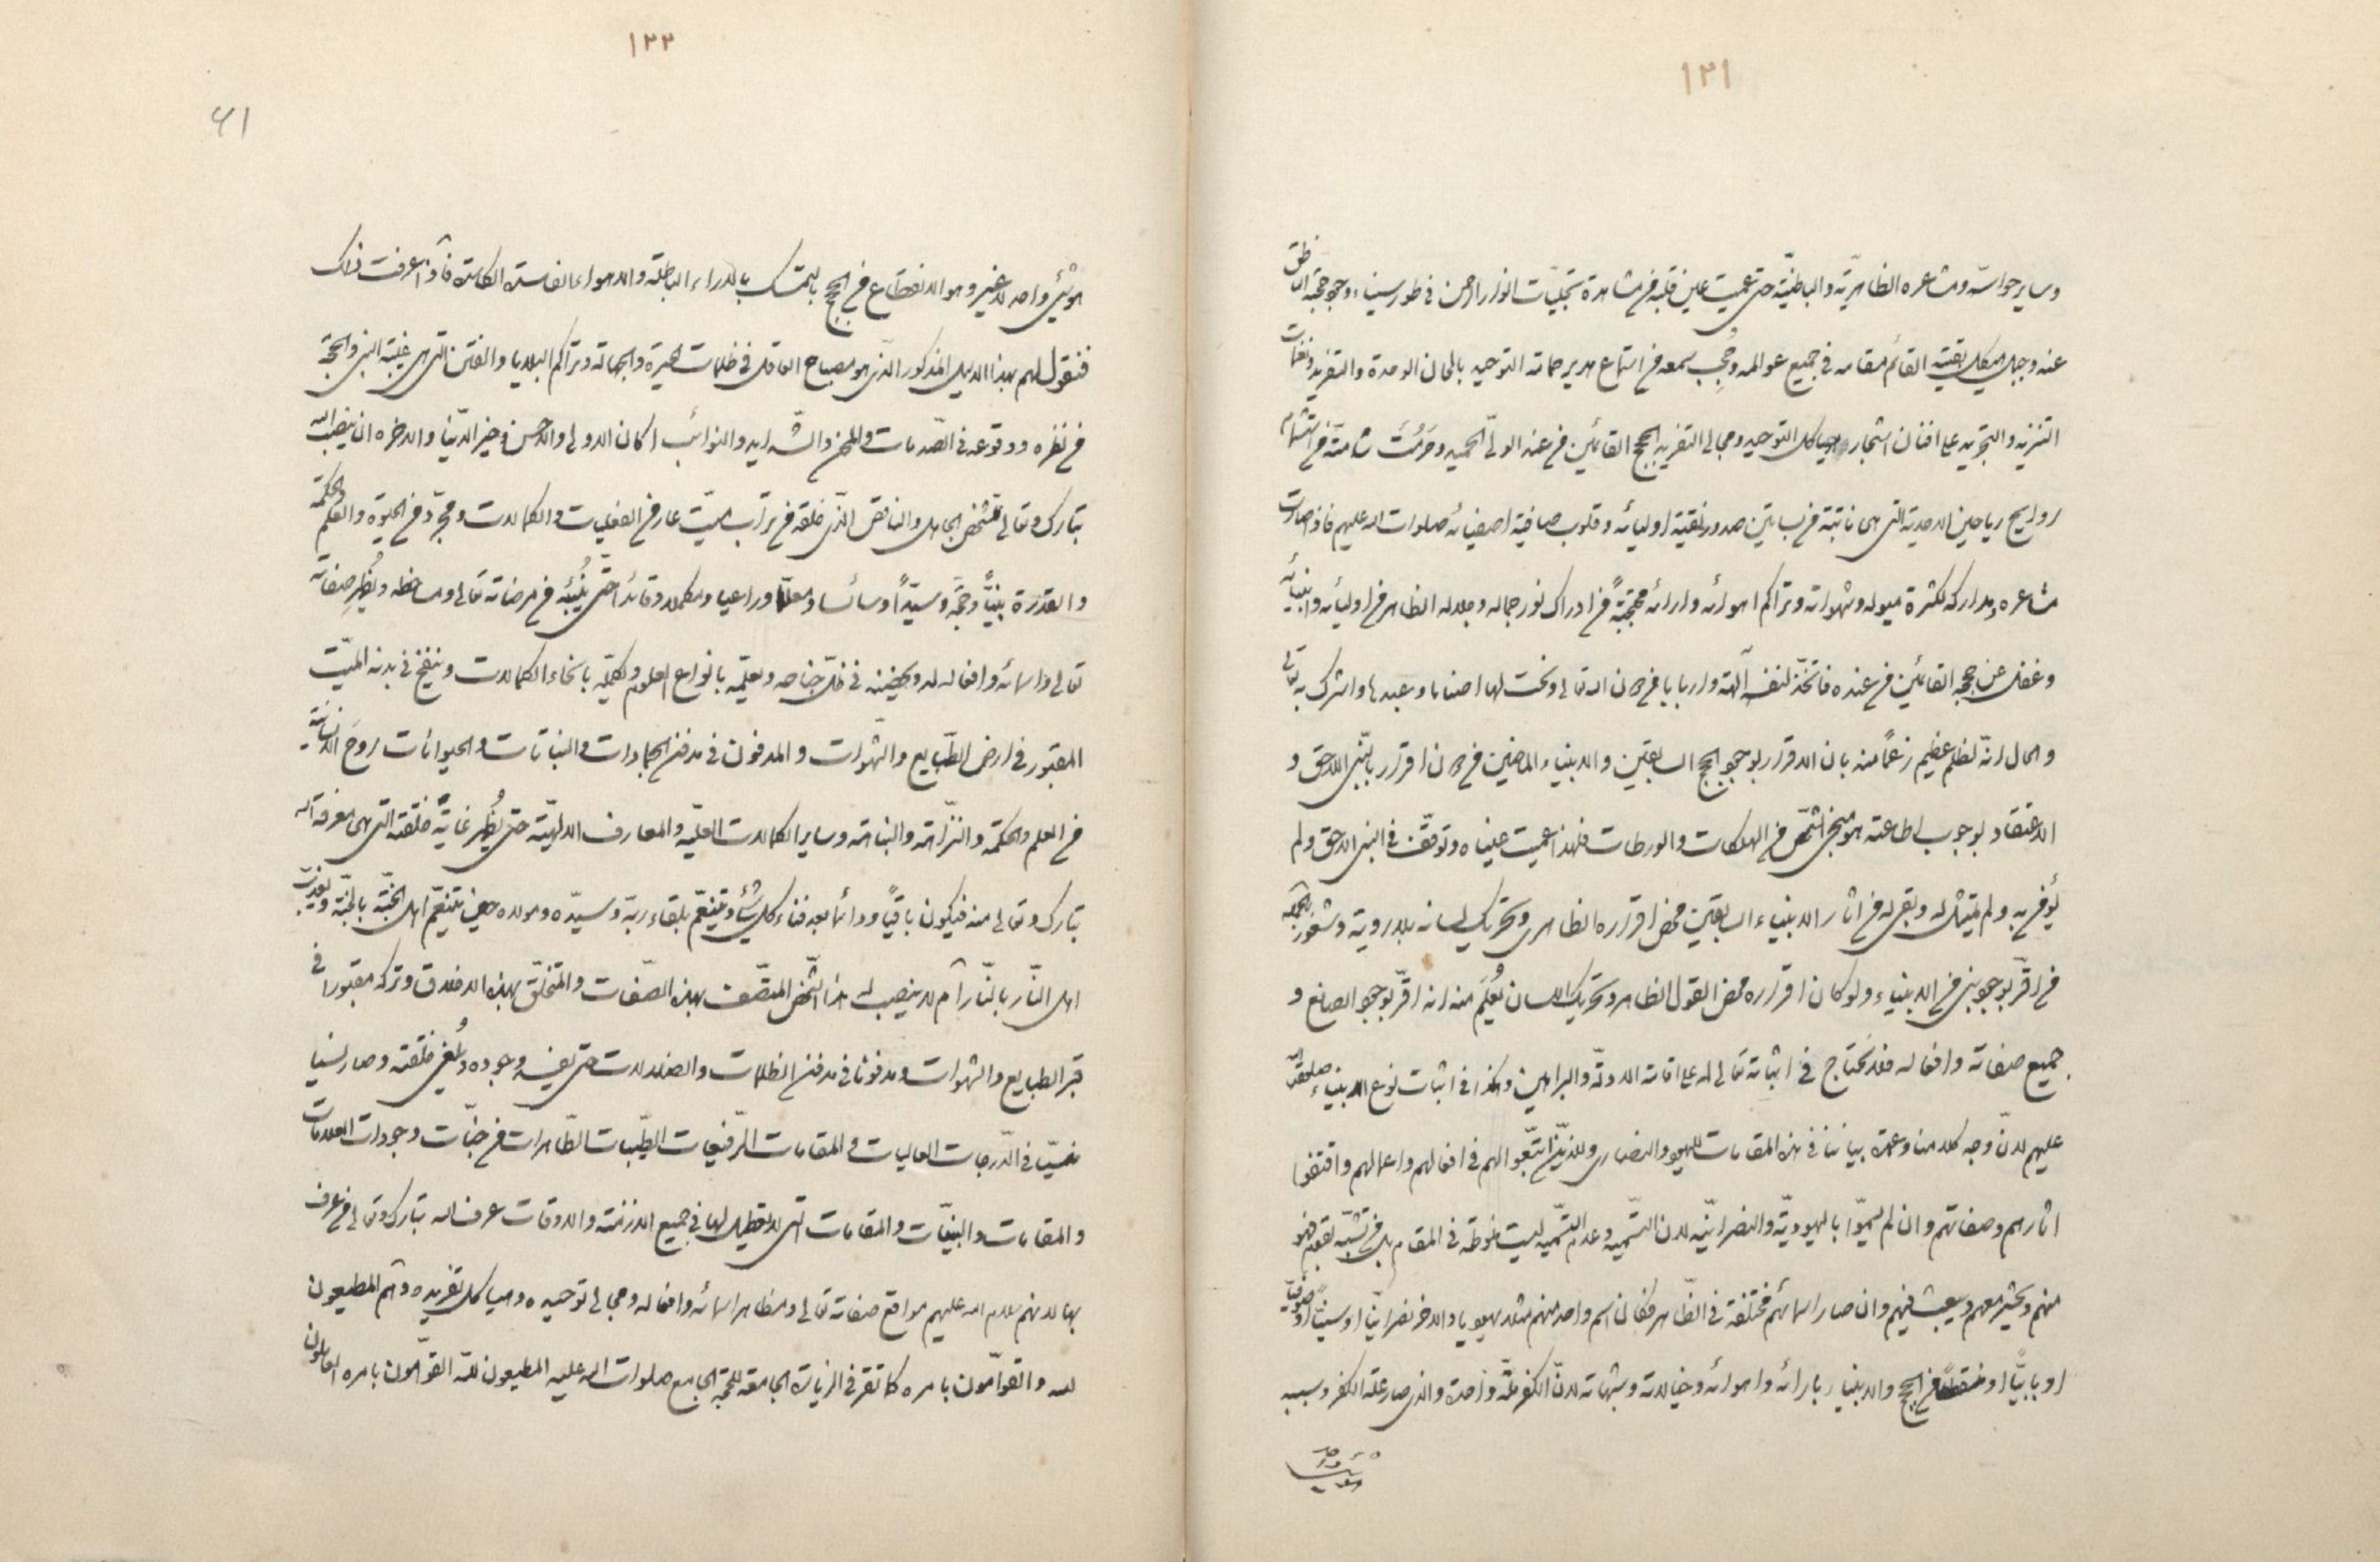 ١٢١
وساير حواسه ومشاعره الظاهريّة والباطنيّة حتى عميت عين قلبه من مشاهدة تجليّات انوار الرحمن فى طور سيناء وجود حجة الناطق
عنه وجبل هيكل بقيته القائم مقامه فى جميع عوالمه وحجب سمعه من استماع هدير حمامة التوحيد بالحان الوحدة والتفريد ونغمات
التنزيه والتجريد على افنان اشجار هياكل التوحيد ومجالى التفريد الحجج القائمين من عند الولىّ الحميد وحرمت شامته من استشمام
روايح رياحين الاحدية التى هى نابتة فى بساتين صدور نقية اوليائه وقلوب صافية اصفيائه صلوات الله عليهم فاذا صارت
مشاعره ومداركه لكثرة ميوله وشهواته وتراكم اهوائه وارائه محتجبةً من ادراك نور جماله وجلاله الظاهر من اوليائه وانبيائه
وغفل عن حججه القائمين من عنده فاتخذ لنفسه آلهة واربابا من دون الله تعالى ونحت لها اصناما وعبدها واشرك به تعالى
والحال انّه لظلم عظيم زعماً منه بان الاقرار بوجود الحجج السابقين والانبياء الماضين من دون اقرار بالنّبى اللاحق و
الاعتقاد بوجوب اطاعته هو منجى الشخص من الهلكات والورطات فلهذا عميت عيناه وتوقّف فى النبى اللاحق ولم
يؤمن به ولم يتمثل له وبقى له من اثار الانبياء السابقين محض اقراره الظاهرى وتحريك لسانه بلا روية وشعور
من اقرّ بوجود نبى من الانبياء ولو كان اقراره محض القول الظاهر وتحريك اللسان يُعلَم منه انه اقرّ بوجود الصانع و
جميع صفاته وافعاله فلا نحتاج فى اثباته تعالى له على اقامة الادلّة والبراهين وهكذا فى اثبات نوع الانبياء صلوات الله
عليهم لانّ وجه كلامنا وعمدة بياننا فى هذه المقامات لليهود والنصارى وللذين اتبّعوا لهم فى افعالهم واعمالهم واقتفوا
اثارهم وصفاتهم وان لم يسمّوا باليهوديّة والنصرانيّة لان التسمية وعدم التسمية ليست منوطة فى المقام بل من تشبّه بقوم فهو
منهم ويحشر معهم ويبعث فيهم وان صار اسمائهم مختلفة فى الظّاهر فكان اسم واحد منهم مثلا يهوديا والاخر نصرانيّا او سنيّاً او صوفيّا
او بابيّاً او منقطعاً من الحجج والانبياء بارائه واهوائه وخيالاته وشبهاته لانّ الكفر ملّة واحدة والذى صار علة الكفر وسببه
١٢٢
٦١
هو شىء واحد لا غير وهو الانقطاع من الحجج بالتمسك بالاراء الباطلة والاهواء الفاسدة الكاسدة فاذا عرفت ذلك
فنقول لهم بهذا الدليل المذكور الّذى هو مصباح العاقل فى ظلمات الحيرة والجهالة وتراكم البلايا والفتن التى هى غيبة النبى والحجّة
من نظره ووقوعه فى الصّدمات والمحن والشّدايد والنوائب اكان الاولى والاحسن وخير الدّنيا والاخره ان ينصب الله
تبارك وتعالى لشخص الجاهل والناقص الذّى خلقه من تراب ميّت عار من الفعليات والكمالات ومجرّد من الحيوة والعلم والحكمة
والقدرة نبيّاً وحجّة وسيّداً وسائسا ومعلّما وراعيا ومكملا وقائدا حتّى يُنبّئه من مرضاته تعالى ومساخطه ويُظهِر صفاته
تعالى واسمائه وافعاله له ويحضنه فى ظلّ جناحه ويعلّمه بانواع العلوم ويكمّله بانحاء الكمالات وينفخ فى بدنه الميّت
المقبور فى ارض الطّبايع والشهوات والمدفون فى مدفن الجمادات والنباتات والحيوانات روحَ الانسانية
من العلم والحكمة والنّزاهة والنباهة وساير الكمالات العليّة والمعارف الالهيّة حتى يُظهِر غايةَ خلقته التى هى معرفة الله
تبارك وتعالى منه فيكون باقياً ودائما بعد فناء كل شىء ويتنعّم بلقاء ربّه وسيّده ومولاه حين يتنعّم اهل الجنّة بالجنّة ويعذّب
اهل النّار بالنّار ام لا ينصب له هذا الشّخص المتّصف بهذه الصّفات والمتخلّق بهذه الاخلاق وتركه مقبورا فى
قبر الطبايع والشهوات ومدفونا فى مدفن الظلمات والضلالات حتى يفنى وجوده ويُلغى خلقته وصار نسيا
منسيّا فى الدّرجات العاليات والمقامات الرّفيعات الطيّبات الطّاهرات من جنّات وجودات العلامات
والمقامات والبيّنات والمقامات التى لا تعطيل لها فى جميع الازمنة والاوقات عرف الله تبارك وتعالى من عرف
بها لانهم سلام الله عليهم مواقع صفاته تعالى ومظاهر اسمائه وافعاله ومجالى توحيده وهياكل تفريده وهم المطيعون
لله والقوّامون بامره كما تقرء فى الزيارة الجامعة للحجة الجامع صلوات الله عليه المطيعون لله القوّامون بامره العاملون